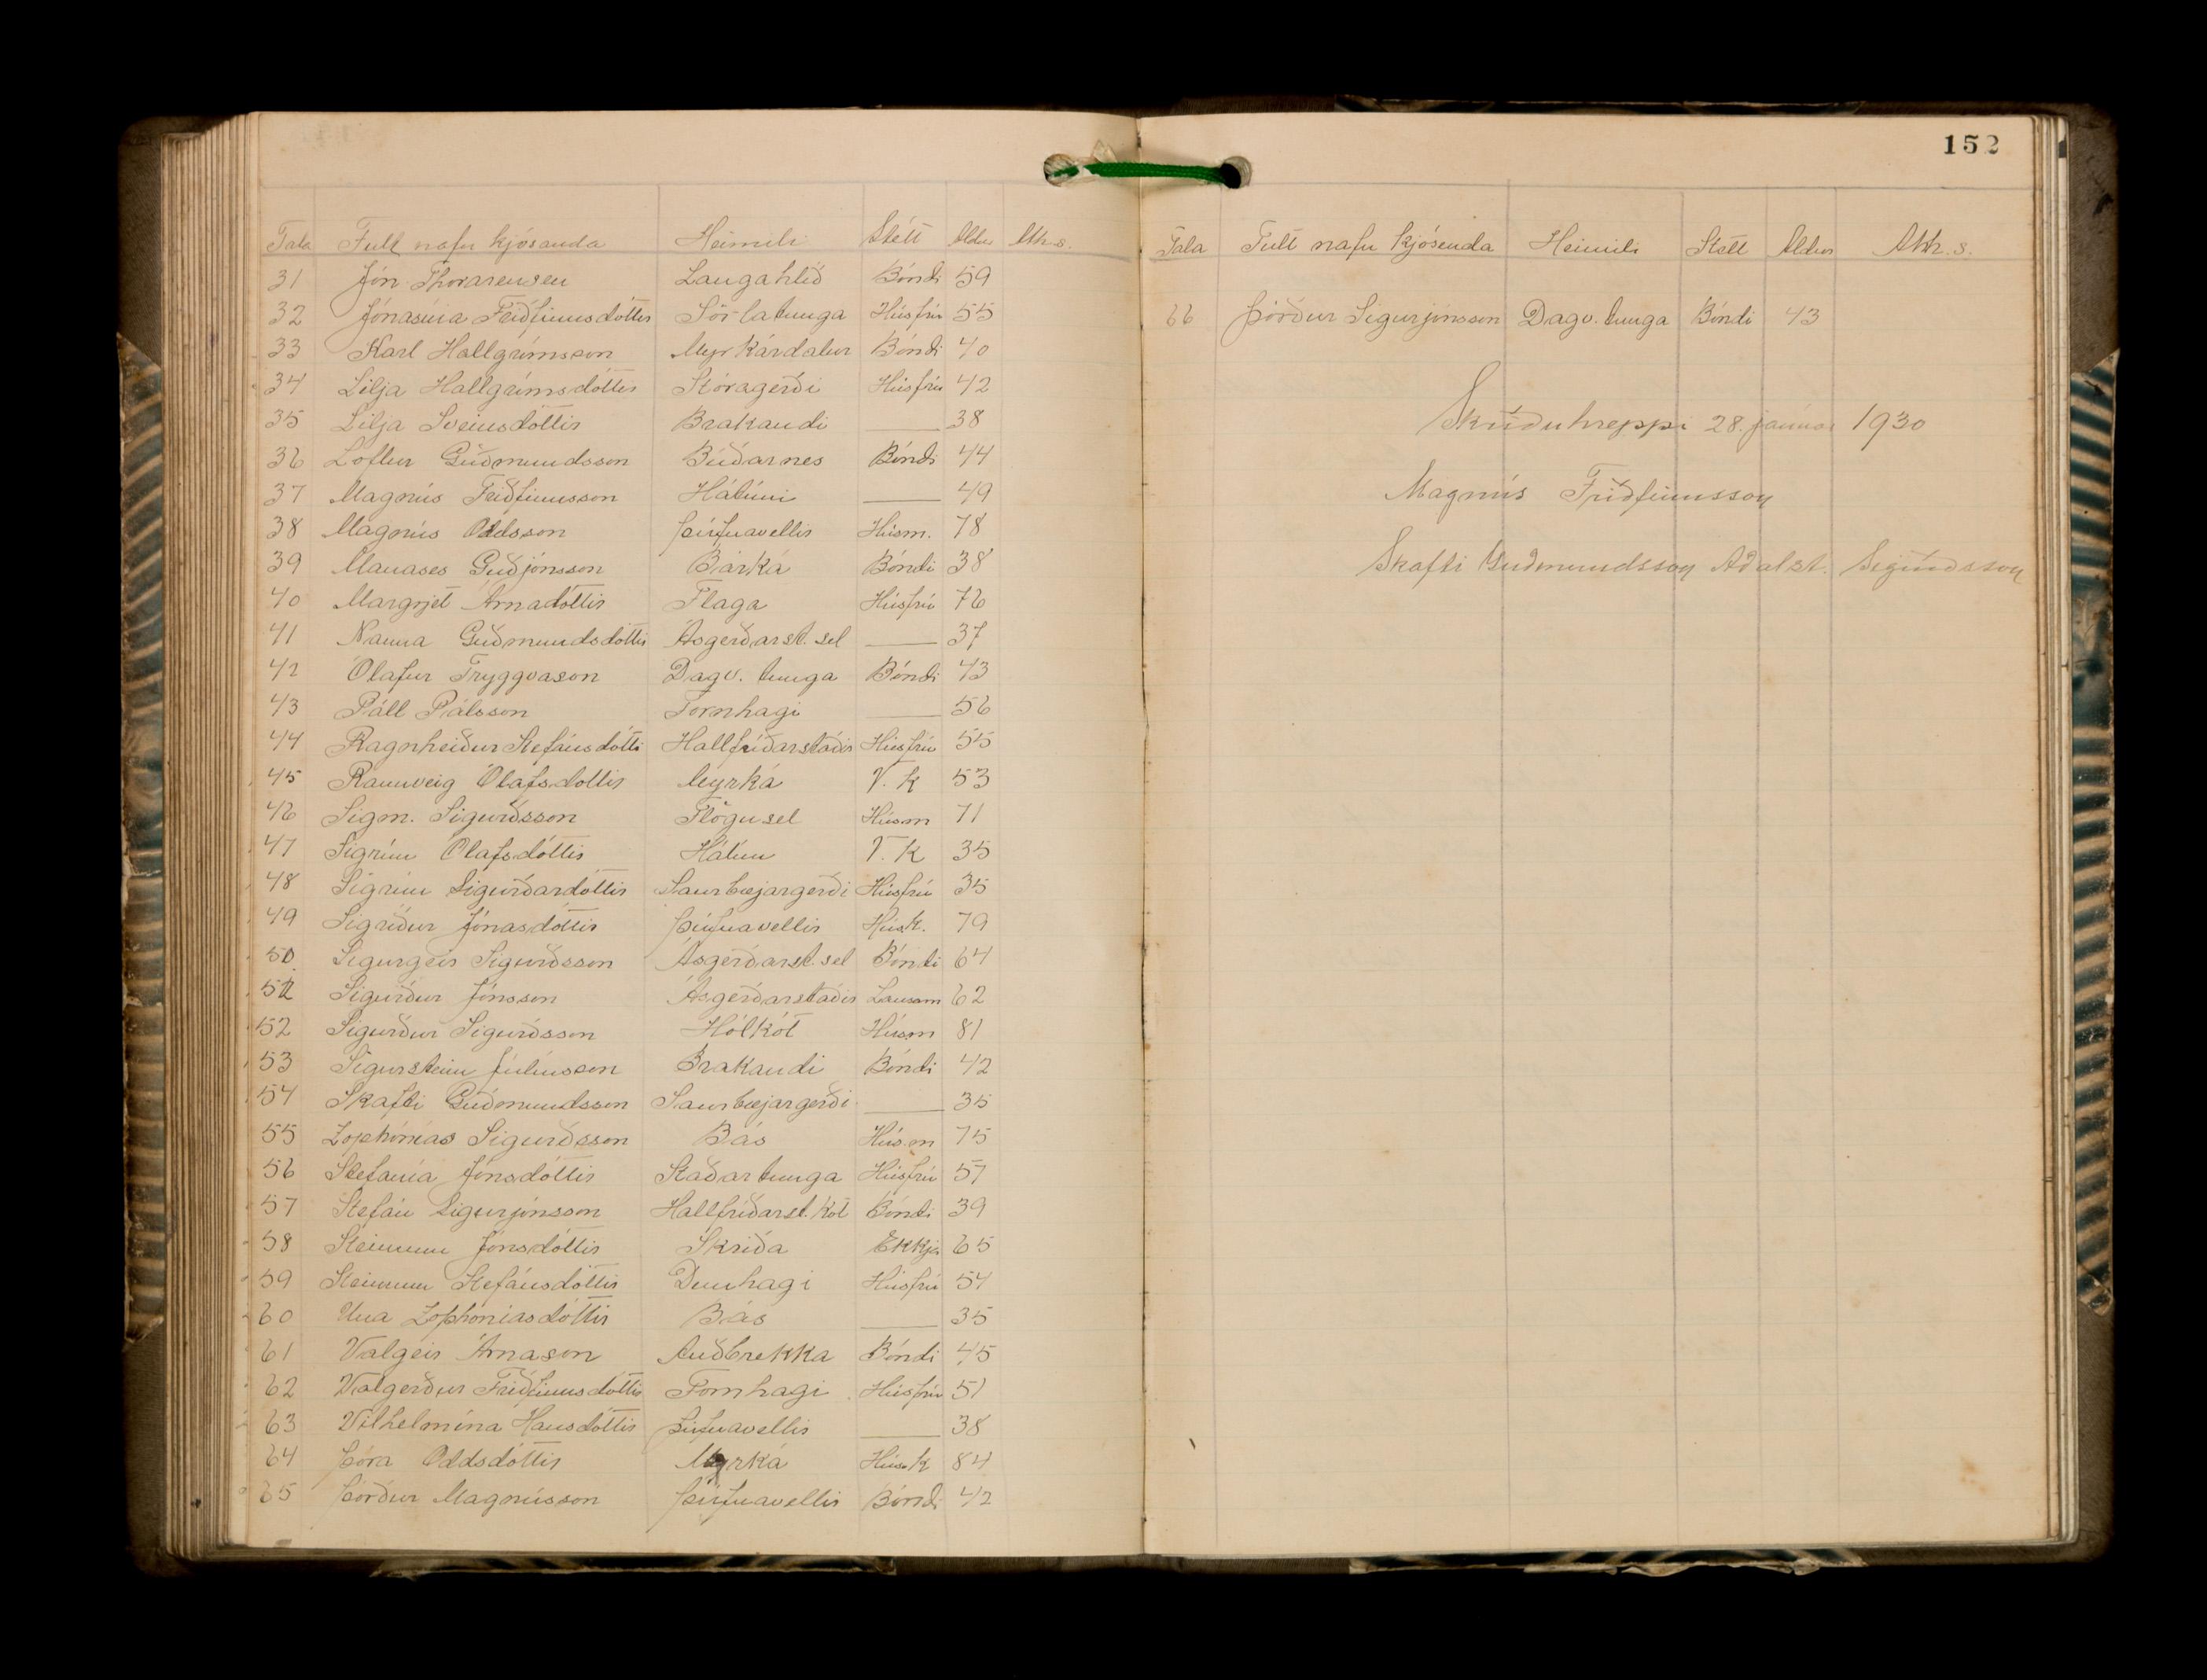 Tala Fullt nafn kjósanda Heimili Stétt Aldur Ath.s.
31 Jón Thorarensen Langahlíð Bóndi 59
32 Jónasína Friðfinnsdóttir Sörlatunga Húsfrú 55
33 Karl Hallgrímsson Myrkárdalur Bóndi 40
34 Lilja Hallgrímsdóttir Stóragerði Húsfrú 42
35 Lilja Sveinsdóttir Brakandi — 38
36 Loftur Guðmundsson Búðarnes Bóndi 44
37 Magnús Friðfinnsson Hátúni — 49
38 Magnús Oddsson Þúfnavellir Húsm. 78
39 Manases Guðjónsson Barká Bóndi 38
40 Margrjet Árnadóttir Flaga Húsfrú 76
41 Nanna Guðmundsdóttir Ásgerðarst. sel — 37
42 Ólafur Tryggvason Dagv. tunga Bóndi 43
43 Páll Pálsson Fornhagi — 56
44 Ragnheiður Stefánsdóttir Hallfríðarstaðir Húsfrú 55
45 Rannveig Ólafsdottir Myrká V. k 53
46 Sigm. Sigurðsson Flögusel Húsm 71
47 Sigrún Ólafsdóttir Hátún V. K 35
48 Sigrún Sigurðardóttir Saurbæjargerði Húsfrú 35
49 Sigríður Jónasdóttir Þúfnavellir Húsk. 79
50 Sigurgeir Sigurðsson Ásgerðarst. sel Bóndi 64
51 Sigurður Jónsson Ásgerðarstaðir Lausam 62
52 Sigurður Sigurðsson Hólkót Húsm 81
53 Sigursteinn Júlíusson Brakandi Bóndi 42
54 Skafti Guðmundsson Saurbæjargerði — 35
55 Zophónías Sigurðsson Bás Húsm 75
56 Stefanía Jónsdóttir Staðartunga Húsfrú 57
57 Stefán Sigurjónsson Hallfríðarst. kot Bóndi 39
58 Steinunn Jónsdóttir Skriða Ekkja 65
59 Steinunn Stefánsdóttir Dunhagi Húsfrú 54
60 Una Zophoníasdóttir Bás — 35
61 Valgeir Árnason Auðbrekka Bóndi 45
62 Valgerður Friðfinnsdóttir Fornhagi Húsfrú 51
63 Vilhelmína Hansdóttir Þúfnavellir — 38
64 Þóra Oddsdóttir Myrká Húsk 84
65 Þórður Magnússon Þúfnavellir Bóndi 42
152
Tala Fullt nafn kjósenda Heimili Stétt Aldur Ath.s.
66 Þórður Sigurjónsson Dagv. tunga Bóndi 43
Skriðuhreppi 28. janúar 1930
Magnús Friðfinnsson
Skafti Guðmundsson Aðalst. Sigurðsson